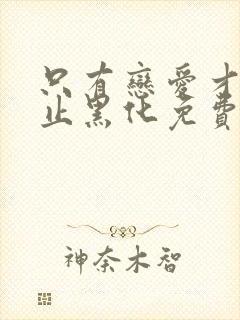 只有戀愛才
止黑化免費
神奈木智